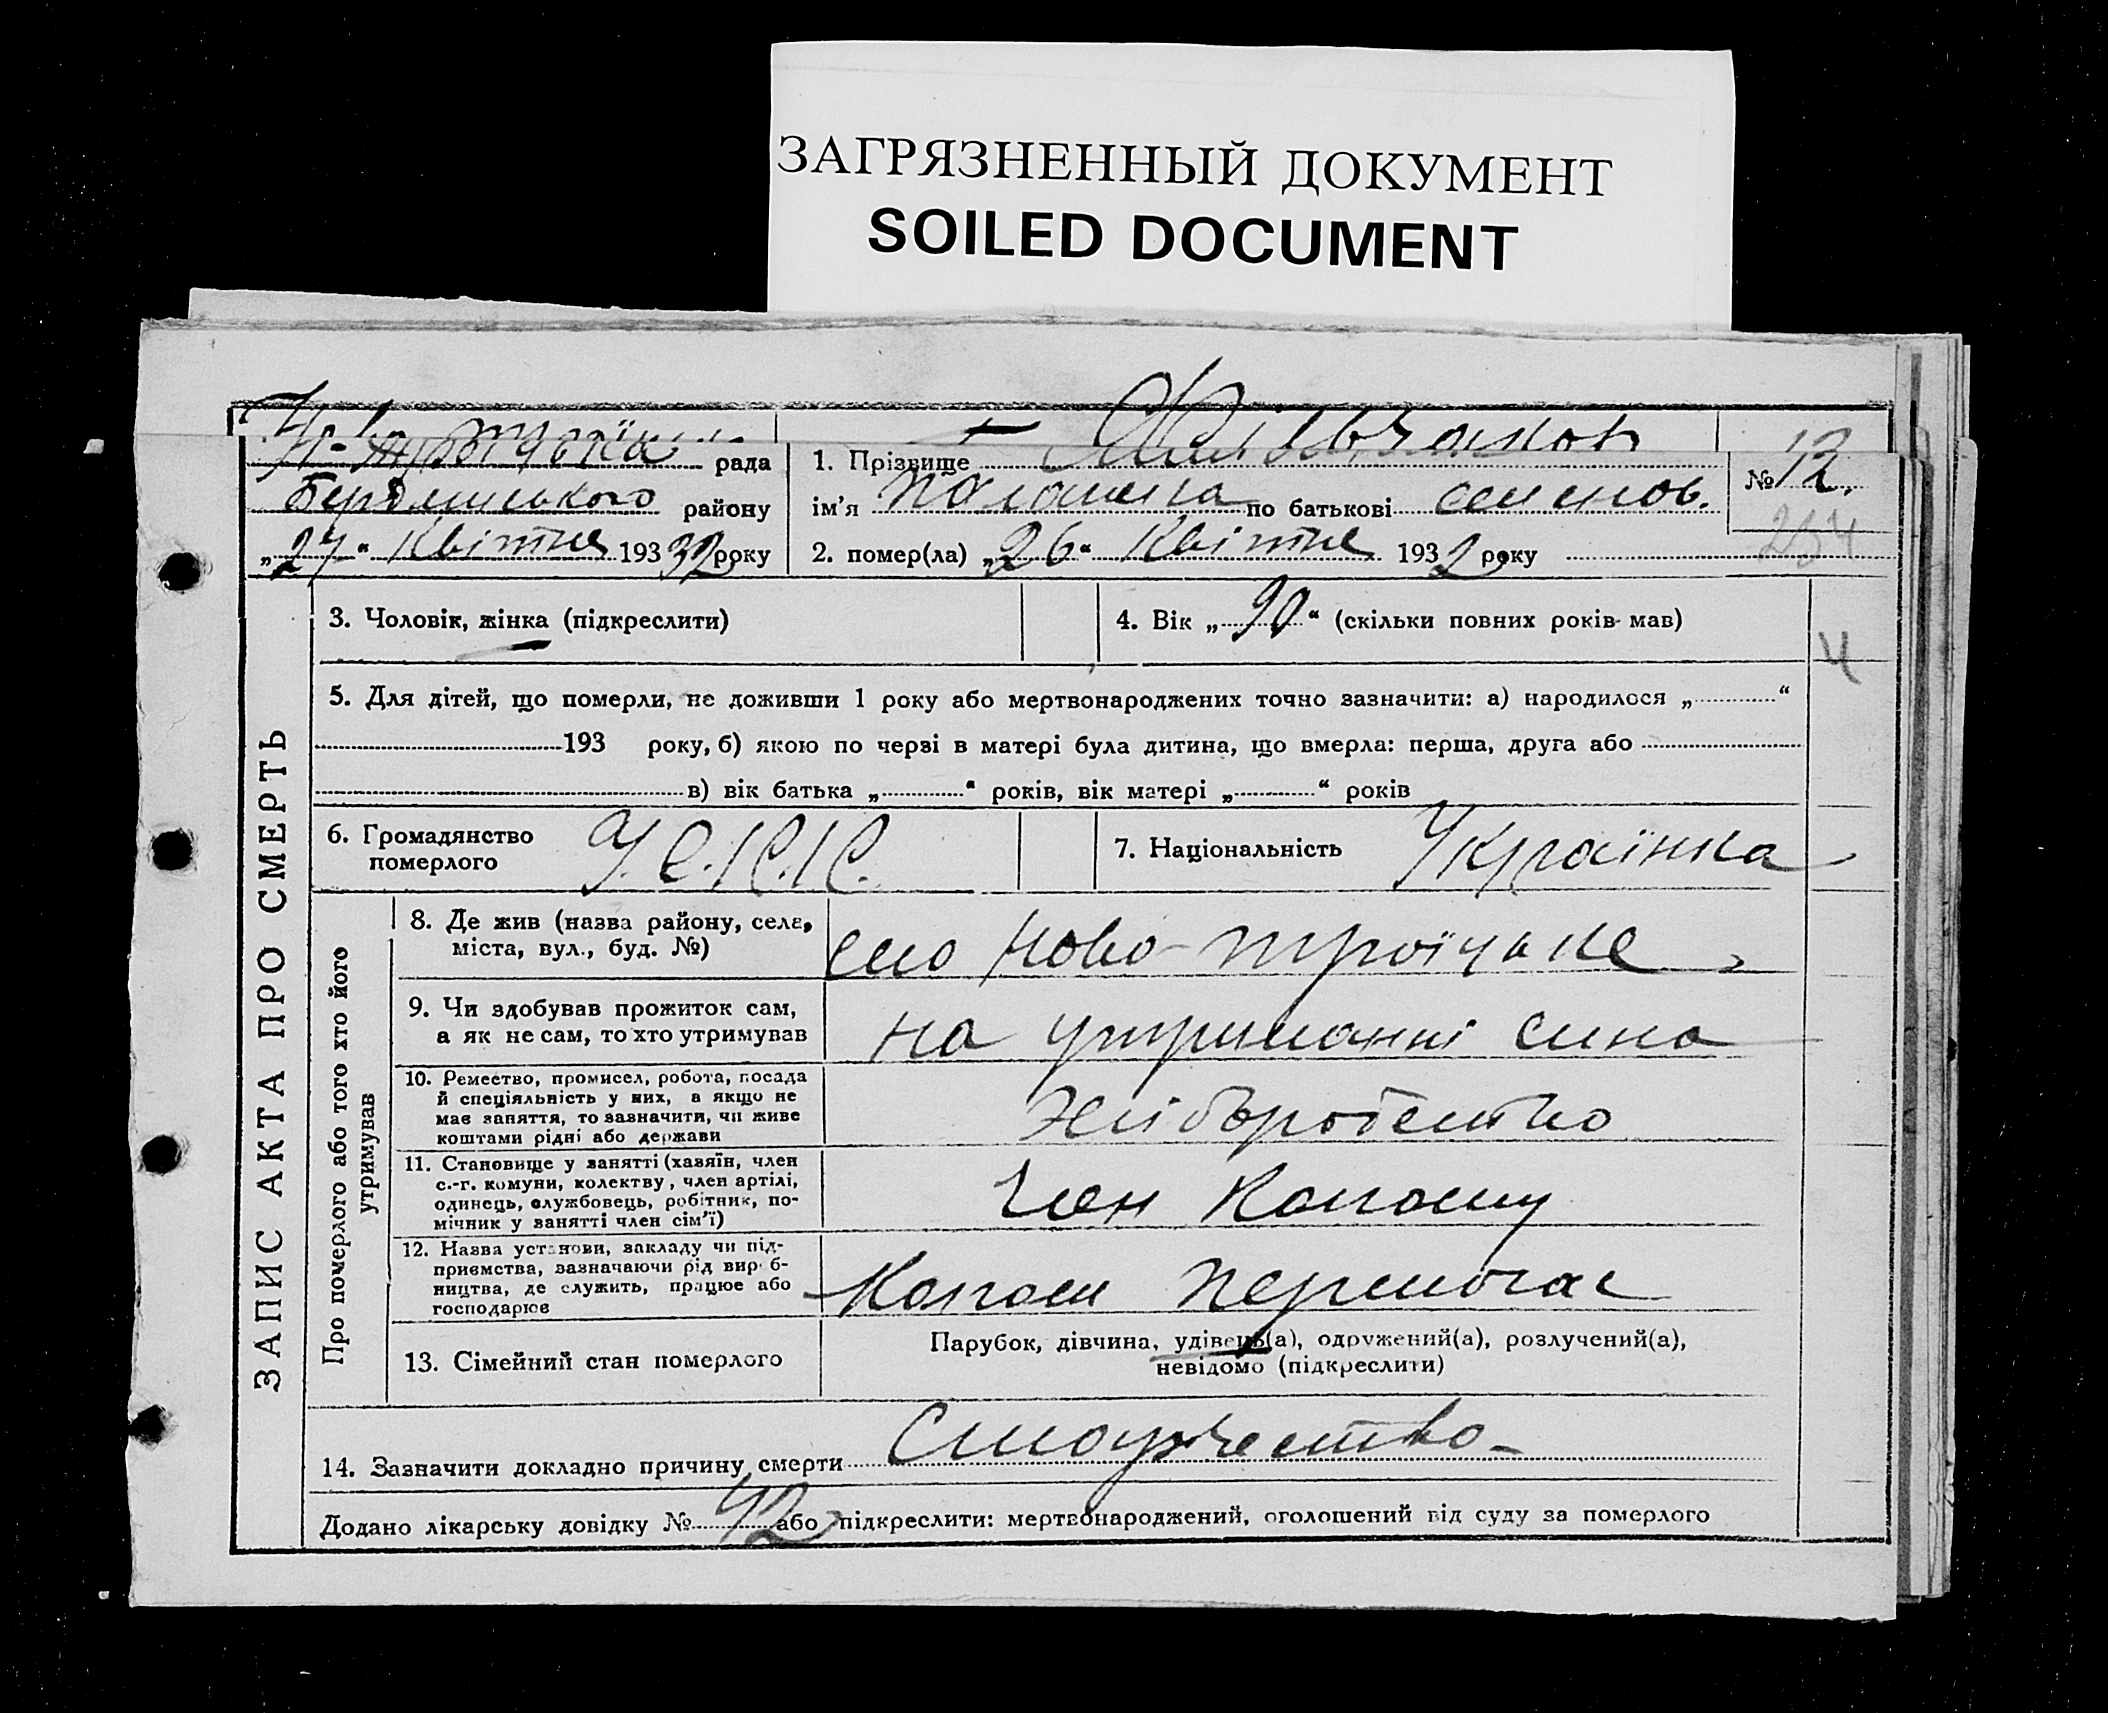 ЗАГРЯЗНЕННЫЙ ДОКУМЕНТ
SOILED DOCUMENT
Н-Троїцька рада
Бердянського району
„27“ Квітня 19332 року
1. Прізвище
№ 12.
ім'я Палажка по батькові семенов.
234
2. помер(ла) „26“ Квітня 1932 року
ЗАПИС АКТА ПРО СМЕРТЬ
3. Чоловік, жінка (підкреслити)
4. Вік „90“ (скільки повних років мав)
4
5. Для дітей, що померли, не доживши 1 року або мертвонароджених точно зазначити: а) народилося „ “
193 року, б) якою по черзі в матері була дитина, що вмерла: перша, друга або
в) вік батька „ “ років, вік матері „ “ років
6. Громадянство
померлого
У.С.Р.Р.
7. Національність Українка
Про померлого або того хто його
утримував
8. Де жив (назва району, села,
міста, вул., буд. №)
село Ново-троїцьке
9. Чи здобував прожиток сам,
а як не сам, то хто утримував
на утриманні сина
10. Ремество, промисел, робота, посада
й спеціяльність у них, а якщо не
має заняття, то зазначити, чи живе
коштами рідні або держави
Хліборобство
11. Становище у занятті (хазяїн, член
с.-г. комуни, колектву, член артілі,
одинець, службовець, робітник, по-
мічник у занятті член сім'ї)
Член Колгоспу
12. Назва установи, закладу чи під-
приємства, зазначаючи рід вироб-
ництва, де служить, працює або
господарює
Колгосп
13. Сімейний стан померлого
Парубок, дівчина, удівець(а), одружений(а), розлучений(а),
невідомо (підкреслити)
14. Зазначити докладно причину смерти
Додано лікарську довідку № 42 або підкреслити: мертвонароджений, оголошений від суду за померлого